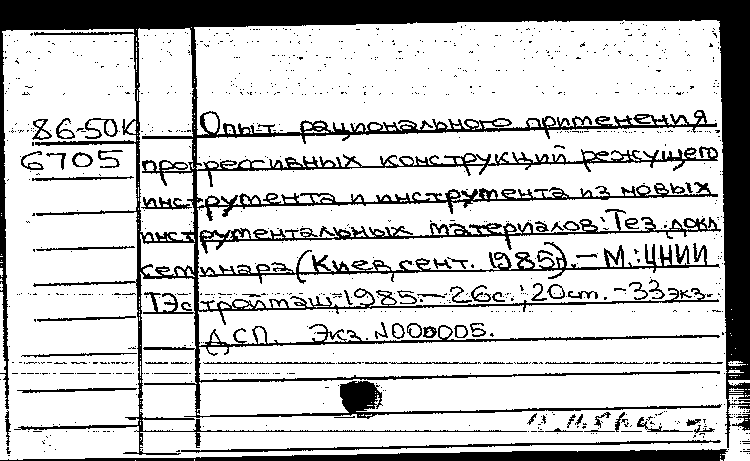 86-50К Опыт рационального применения
6705 прогрессивных конструкций режущего
инструмента и инструмента из новых
инструментальных материалов: Тез. докл
семинара (Киев, сент. 1985г). – М.: ЦНИИ
ТЭстроймаш, 1985. – 26с.; 20см. – 33 экз.
ДСП. Экз. N000005.